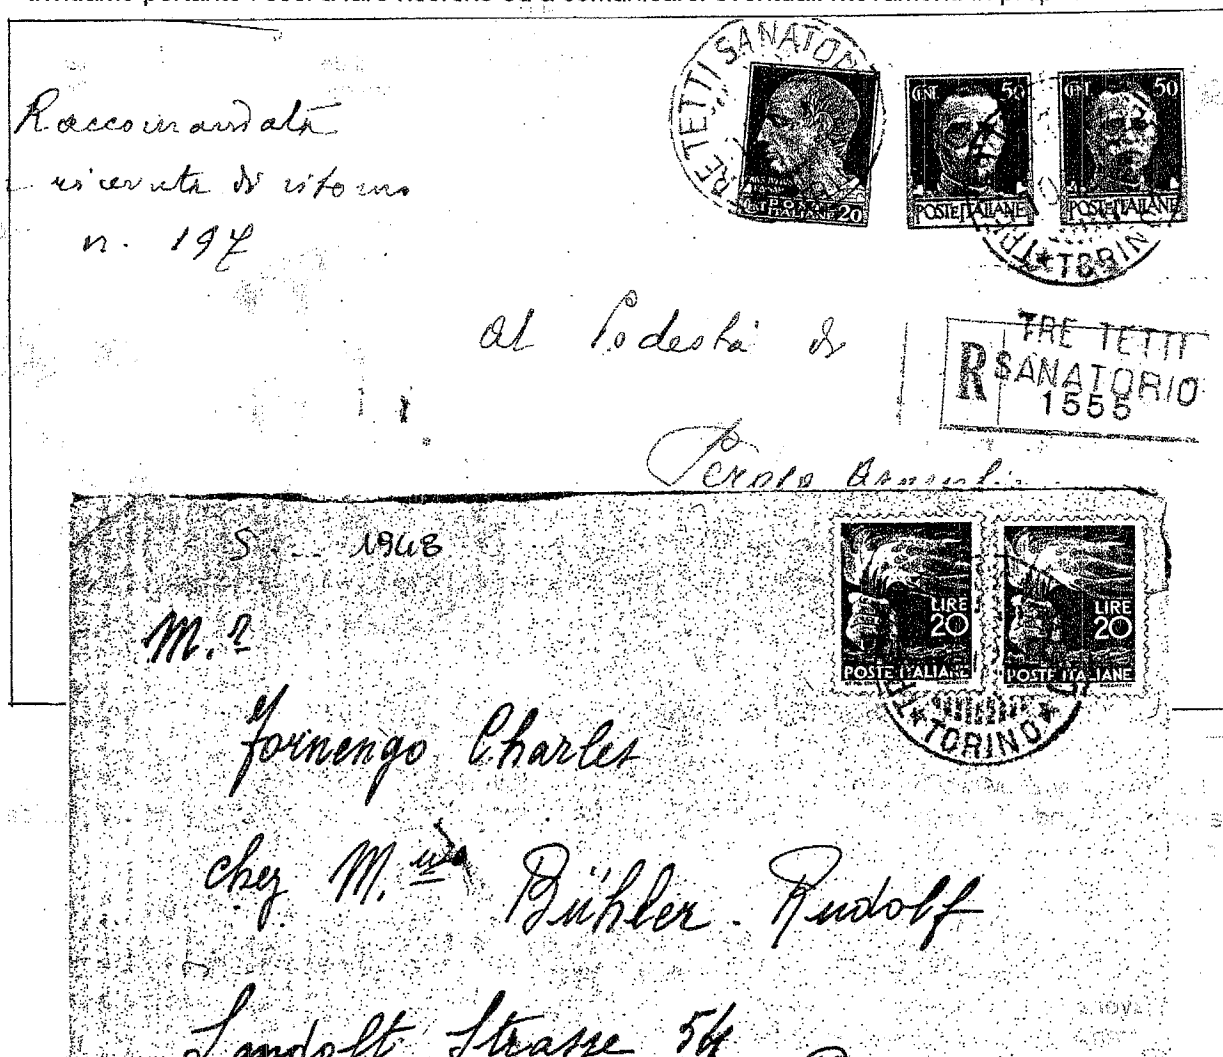 Raccomandata
ricevuta di ritorno
n. 197
RE TETTI SANATOR
POSTE ITALIANE 20
CENT. 50
POSTE ITALIANE
CENT. 50
POSTE ITALIANE
TORINO
Al Podestà di
R TRE TETTI
SANATORIO
1555
1948
LIRE
20
POSTE ITALIANE
LIRE
20
POSTE ITALIANE
TORINO
M.r
Fornengo Charles
chez M.
Bühler Rudolf
Landolt Strasse 54